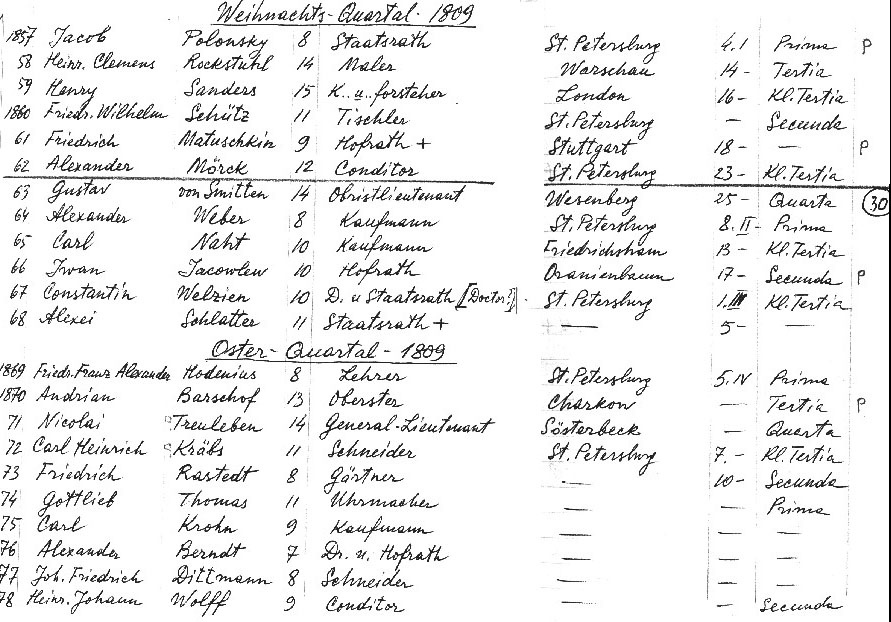 Weihnachts-Quartal. 1809
1857 Jacob Polonsky 8 Staatsrath St. Petersburg 4.I Prima P
58 Heinr. Clemens Rockstuhl 14 Maler Warschau 14 - Tertia
59 Henry Sanders 15 K.. u.. forsteher London 16 - Kl. Tertia
1860 Friedr. Wilhelm Schütz 11 Tischler St. Petersburg — Secunda
61 Friedrich Matuschkin 9 Hofrath + Stuttgart 18 - — P
62 Alexander Mörck 12 Conditor St. Petersburg 23 - Kl. Tertia
63 Gustav von Smitten 14 Obristlieutenant Wesenberg 25 - Quarta 30
64 Alexander Weber 8 Kaufmann St. Petersburg 8. II - Prima
65 Carl Naht 10 Kaufmann Friedrichsham 13 - Kl. Tertia
66 Iwan Jacowlew 10 Hofrath Oranienbaum 17 - Secunda P
67 Constantin Welzien 10 D. u Staatsrath [Doctor!] St. Petersburg 1. III Kl. Tertia
68 Alexei Schlatter 11 Staatsrath + — 5 - —
Oster-Quartal - 1809
1869 Friedr. Franz Alexander Hodenius 8 Lehrer St. Petersburg 5. IV Prima
1870 Andrian Barschof 13 Oberster Charkow — Tertia P
71 Nicolai Treuleben 14 General-Lieutenant Sösterbeck — Quarta
72 Carl Heinrich Kräbs 11 Schneider St. Petersburg 7. - Kl. Tertia
73 Friedrich Rastedt 8 Gärtner — 10 - Secunda
74 Gottlieb Thomas 11 Uhrmacher — — Prima
75 Carl Krohn 9 Kaufmann — — —
76 Alexander Berndt 7 Dr. u. Hofrath — — —
77 Joh. Friedrich Dittmann 8 Schneider — — —
78 Heinr. Johann Wolff 9 Conditor — — Secunda